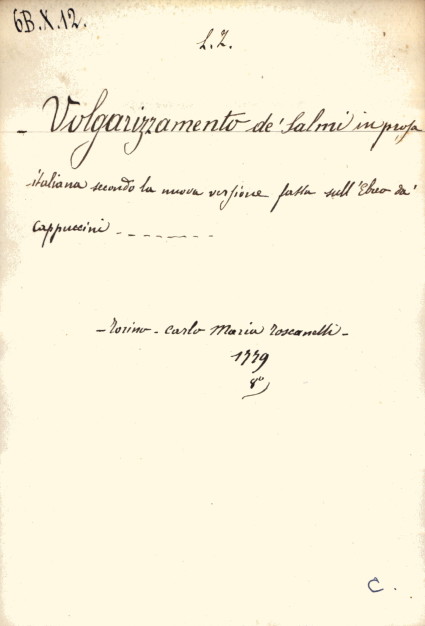 6B.X.12.
L.Z.
- Volgarizzamento de' Salmi in prosa
italiana secondo la nuova versione fatta sull'Ebreo da'
Cappuccini - - - - - -
- Torino - Carlo Maria Toscanelli -
1779
8º
C.